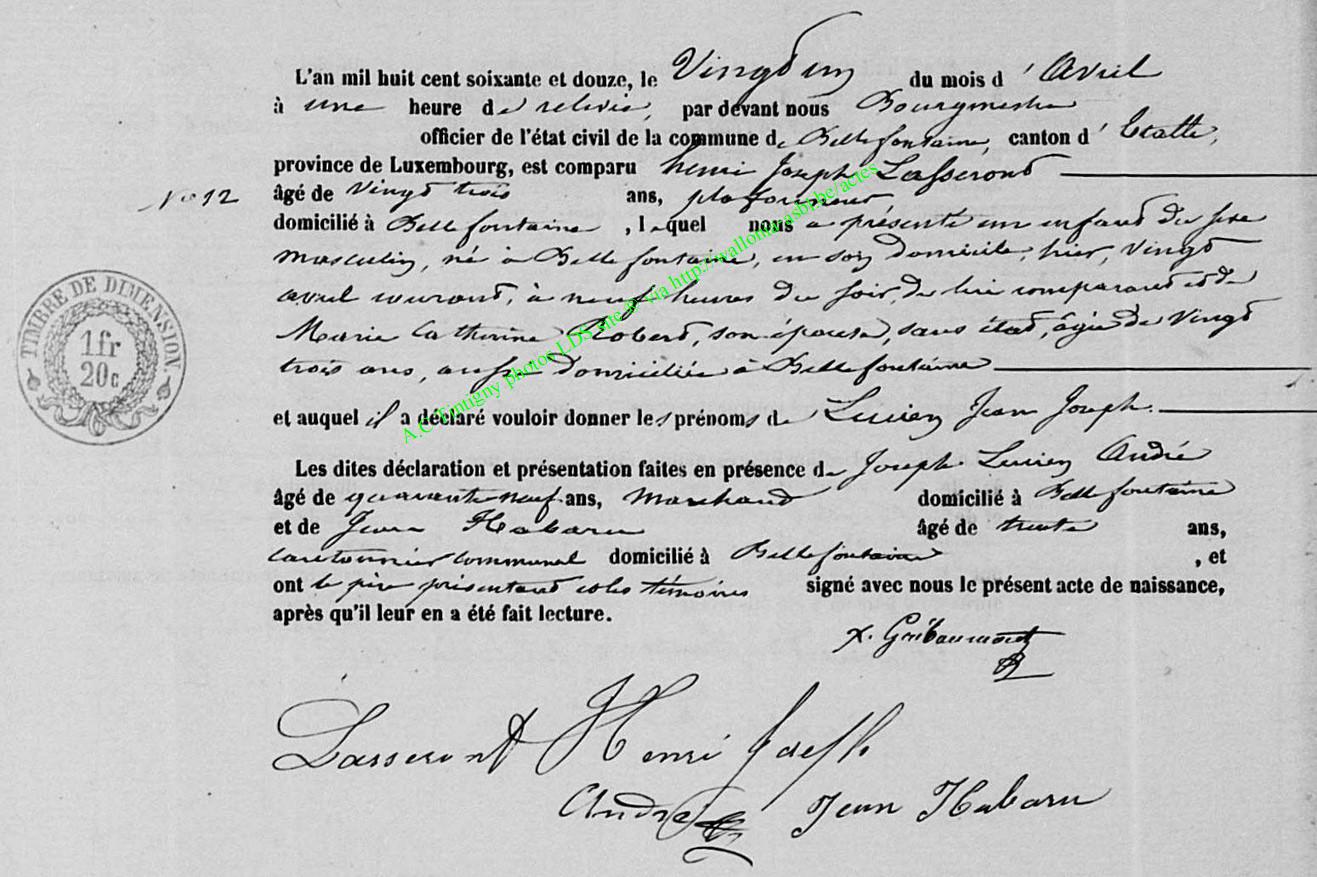 L'an mil huit cent soixante et douze, le Vingt un du mois d'Avril
à une heure de relevée, par devant nous Bourgmestre
officier de l'état civil de la commune de Bellefontaine, canton d'Etalle,
province de Luxembourg, est comparu henri Joseph Lasseront
N° 12 âgé de vingt trois ans, plafonneur,
domicilié à Bellefontaine, lequel nous a présenté un enfant du sexe
masculin, né à Bellefontaine, en son domicile, hier, vingt
avril courant, à neuf heures du soir, de lui comparant et de
Marie Catherine Robert, son épouse, sans état, âgée de vingt
trois ans, aussi domiciliée à Bellefontaine
et auquel il a déclaré vouloir donner les prénoms de Lucien Jean Joseph.
Les dites déclaration et présentation faites en présence de Joseph Lucien André
âgé de quarante neuf ans, marchand domicilié à Bellefontaine
et de Jean Habaru âgé de trente ans,
cantonnier communal domicilié à Bellefontaine, et
ont le père présentant et les témoins signé avec nous le présent acte de naissance,
après qu'il leur en a été fait lecture.
TIMBRE DE DIMENSION.
1fr
20c
Lasseront Henri Joseph
André Jean Habaru
A.C. Tintigny photos LDS site & via http://wallonia.asbl.be/actes